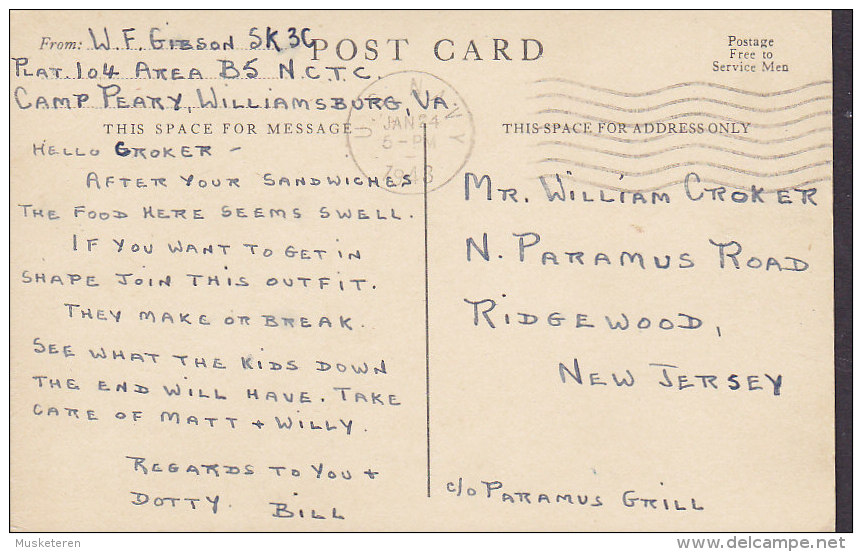 From: W.F. GIBSON SK3C
POST CARD
Postage
Free to
Service Men
PLAT. 104 AREA B5 N.C.T.C.
CAMP PEARY, WILLIAMSBURG, VA.
U.S. NAVY
JAN 24
6-PM
1943
THIS SPACE FOR MESSAGE
HELLO CROKER -
AFTER YOUR SANDWICHES
THE FOOD HERE SEEMS SWELL.
IF YOU WANT TO GET IN
SHAPE JOIN THIS OUTFIT.
THEY MAKE OR BREAK.
SEE WHAT THE KIDS DOWN
THE END WILL HAVE. TAKE
CARE OF MATT + WILLY.
REGARDS TO YOU +
DOTTY. BILL
THIS SPACE FOR ADDRESS ONLY
MR. WILLIAM CROKER
N. PARAMUS ROAD
RIDGEWOOD,
NEW JERSEY
c/o PARAMUS GRILL
Musketeren
delcampe.net